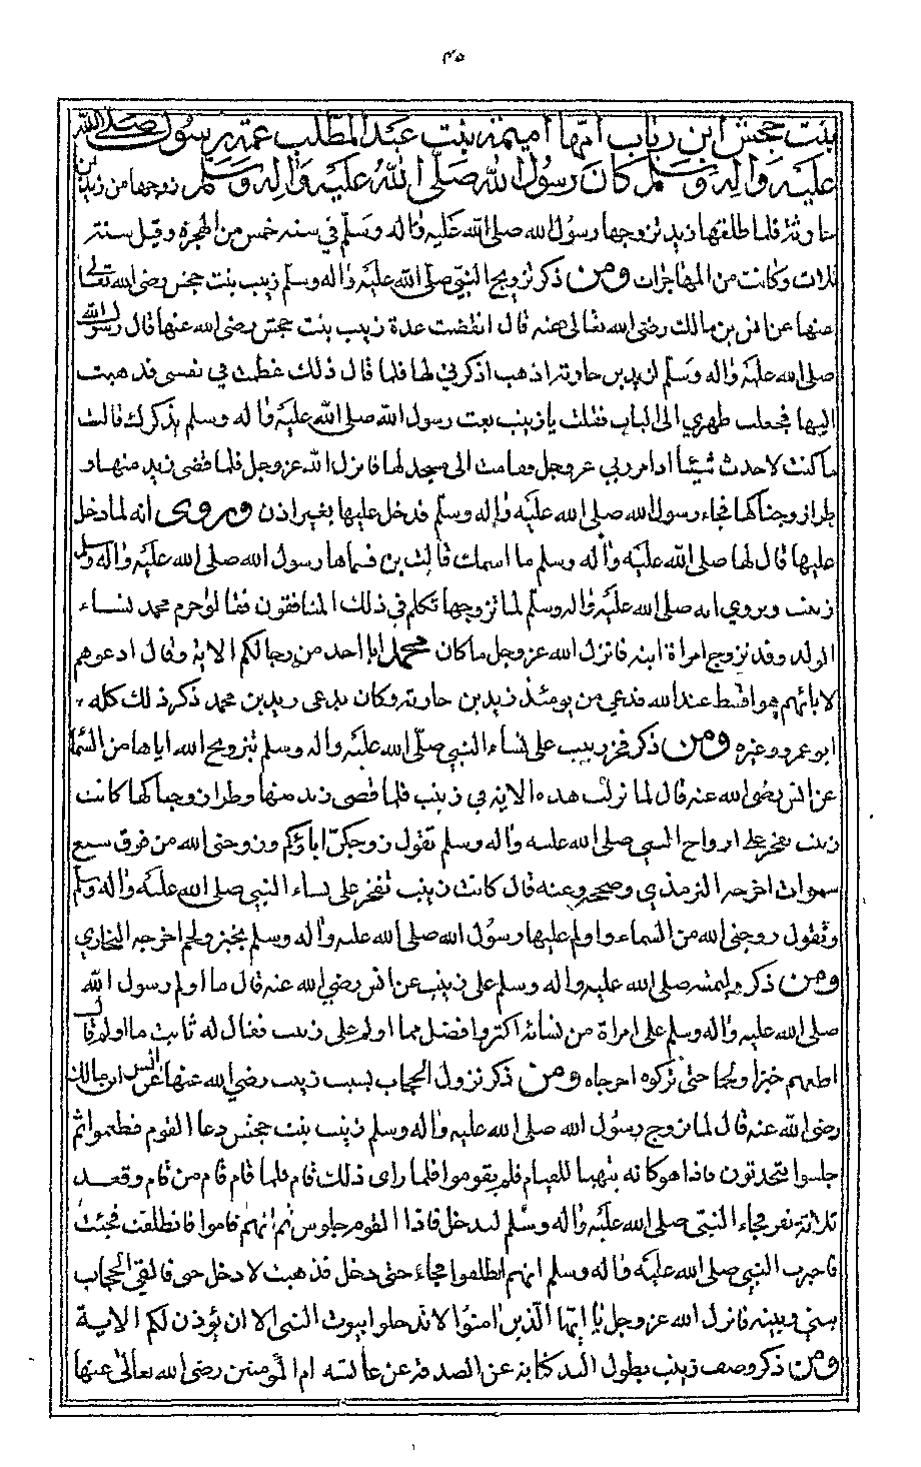 ٤٥
بنت جحش ابن رياب امها اميمة بنت عبد المطلب عمة رسول صلى الله
عليه واله وسلم كان رسول الله صلى الله عليه واله وسلم زوجها من زيد بن
حارثة فلما طلقها زيد تزوجها رسول الله صلى الله عليه واله وسلم في سنه خمس من الهجرة وقيل سنة
ثلاث وكانت من المهاجرات ومن ذكر تزويج النبي صلى الله عليه واله وسلم زينب بنت جحش رضي الله تعالى
عنها عن انس بن مالك رضي الله تعالى عنه قال انقضت عدة زينب بنت جحش رضي الله عنها قال رسول الله
صلى الله عليه واله وسلم لزيد بن حارثة اذهب اذكرني لها فلما قال ذلك عظمت في نفسي فذهبت
اليها فجعلت ظهري الى الباب فقلت يا زينب بعث رسول الله صلى الله عليه واله وسلم بذكرك فقالت
ما كنت لاحدث شيئا اوامر ربي عز وجل فقامت الى مسجد لها فانزل الله عز وجل فلما قضى زيد منها و
طرا زوجناكها فجاء رسول الله صلى الله عليه واله وسلم فدخل عليها بغير اذن وروى انه لما دخل
عليها قال لها صلى الله عليه واله وسلم ما اسمك قالت بره فسماها رسول الله صلى الله عليه واله وسلم
زينب ويروي انه صلى الله عليه واله وسلم لما تزوجها تكلم في ذلك المنافقون فقالوا حرم محمد نساء
الولد وقد تزوج امراة ابنه فانزل الله عز وجل ما كان محمد ابا احد من رجالكم الاية وقال ادعوهم
لابائهم هو اقسط عند الله فدعي من يومئذ زيد بن حارثه وكان يدعى زيد بن محمد ذكر ذلك كله
ابو عمرو وغيره ومن ذكر فخر زينب على نساء النبي صلى الله عليه واله وسلم بتزويج الله اياها من السماء
عن انس رضي الله عنه قال لما نزلت هذه الاية في زينب فلما قضى زيد منها وطرا زوجناكها كانت
زينب تفخر على ازواج النبي صلى الله عليه واله وسلم تقول زوجكن اباؤكم وزوجني الله من فوق سبع
سموات اخرجه الترمذي وصححه وعنه قال كانت زينب تفخر على نساء النبي صلى الله عليه واله وسلم
وتقول زوجني الله من السماء واولم عليها رسول الله صلى الله عليه واله وسلم بخبز ولحم اخرجه البخاري
ومن ذكر وليمته صلى الله عليه واله وسلم على زينب عن انس رضي الله عنه قال ما اولم رسول الله
صلى الله عليه واله وسلم على امراة من نسائه اكثر وافضل مما اولم على زينب فقال له ثابت ما اولم قال
اطعمهم خبزا ولحما حتى تركوه اخرجاه ومن ذكر نزول الحجاب بسبب زينب رضي الله عنها عن انس ابن مالك
رضي الله عنه قال لما تزوج رسول الله صلى الله عليه واله وسلم زينب بنت جحش دعا القوم فطعموا ثم
جلسوا يتحدثون فاذا هو كانه يتهيا للقيام فلم يقوموا فلما راى ذلك قام فلما قام قام من قام وقعد
ثلاثة نفر فجاء النبي صلى الله عليه واله وسلم ليدخل فاذا القوم جلوس ثم انهم قاموا فانطلقت فجئت
فاخبرت النبي صلى الله عليه واله وسلم انهم انطلقوا فجاء حتى دخل فذهبت لادخل حتى فالقي الحجاب
بيني وبينه فانزل الله عز وجل يا ايها الذين امنوا لا تدخلوا بيوت النبي الا ان يؤذن لكم الاية
ومن ذكر وصف زينب بطول اليد كناية عن الصدقة عن عائشه ام المؤمنين رضي الله تعالى عنها